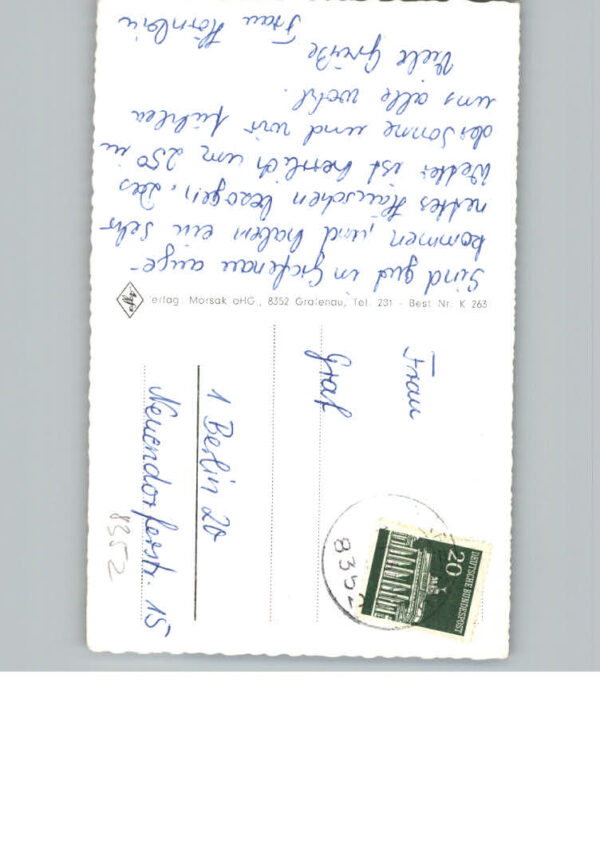 Sind gut in Grafenau ange-
kommen, und haben ein sehr
nettes Häuschen bezogen, das
Wetter ist herrlich um 250 in
der Sonne und wir fühlen
uns alle wohl.
Viele Grüße
Frau
erlag: Morsak oHG., 8352 Grafenau, Tel. 231 - Best. Nr. K 263
Agfa
Frau
Graf
1 Berlin 20
Neuendorferstr. 15
8352
8352
20
DEUTSCHE BUNDESPOST